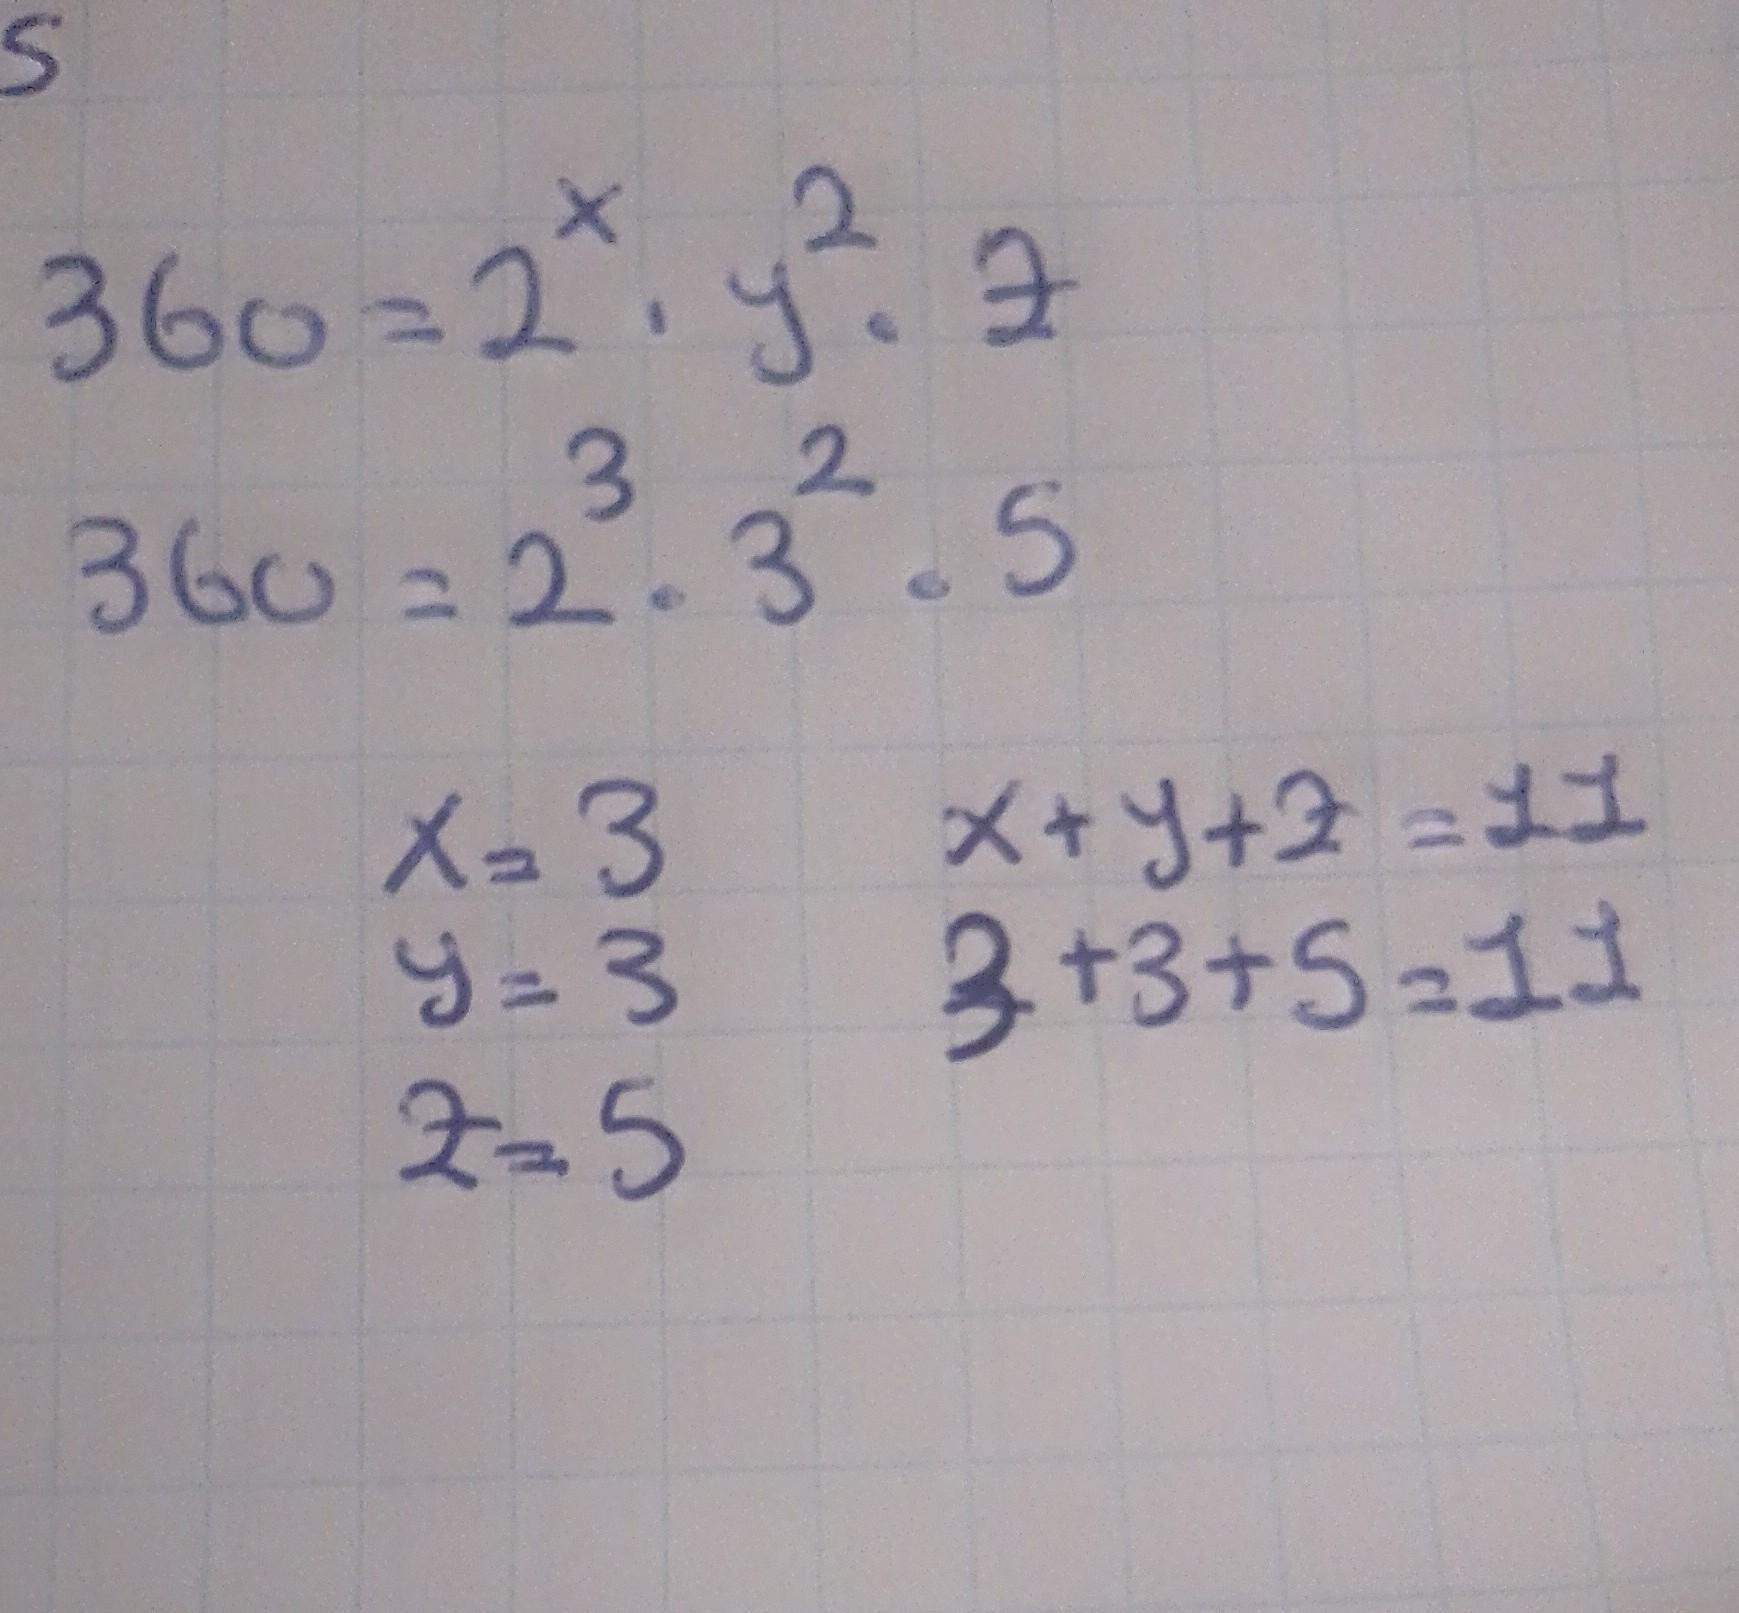 5
360 = 2^x . y^2 . z
360 = 2^3 . 3^2 . 5
x = 3 x + y + z = 11
y = 3 3 + 3 + 5 = 11
z = 5